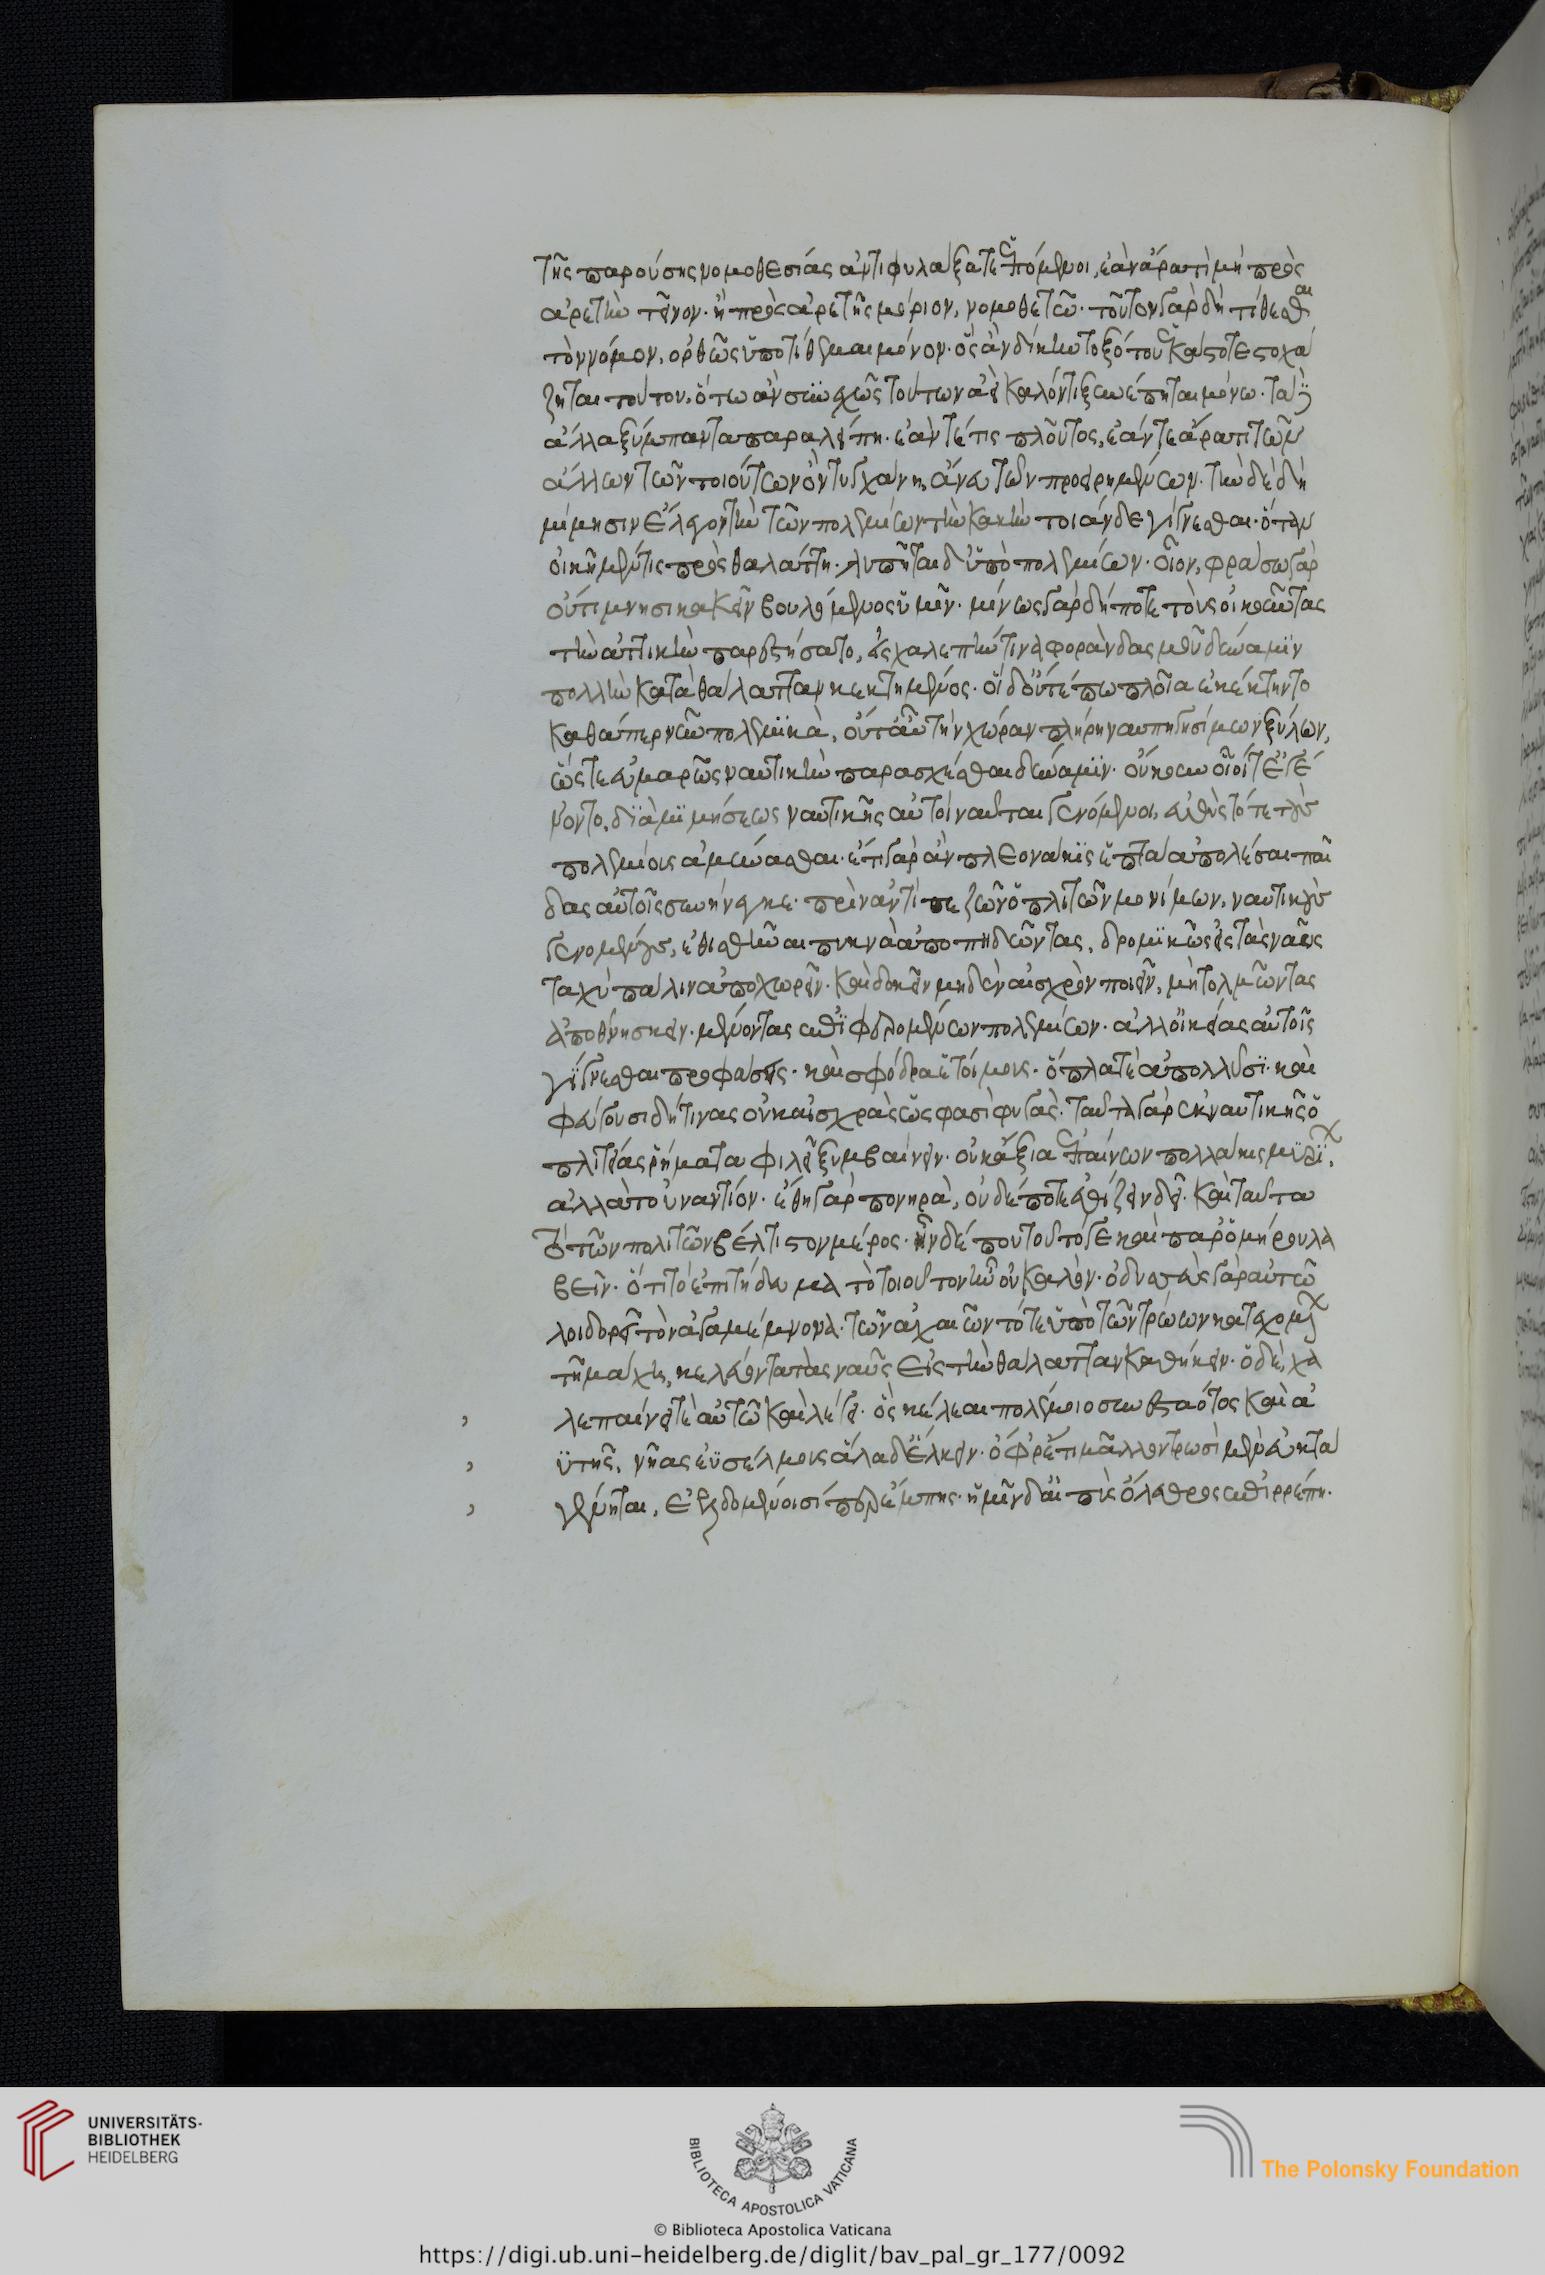 τῆς παρούσης νομοθεσίας ἀντιφυλάξατε ἑπόμενοι, ἐὰν ἄρα τὶ μὴ πρὸς
ἀρετὴν τεῖνον· ἢ πρὸς ἀρετῆς μόριον, νομοθετῶ· τοῦτον γὰρ δὴ τίθεσθαι
τὸν νόμον, ὀρθῶς ὑποτίθεμαι μόνον· ὃς ἂν δίκην τοξότου ἑκάστοτε στοχά
ζηται τούτου, ὅτω ἂν συνεχῶς τούτων ἀεὶ καλόν τι ξυνέπηται μόνω· τὰ δ
ἄλλα ξύμπαντα παραλείπη· ἐάν τέ τις πλοῦτος, ἐάν τε ἄρα τι τῶν
ἄλλων τῶν τοιούτων ὂν τυγχάνη, ἄνευ τῶν προειρημένων· τὴν δὲ δὴ
μίμησιν ἔλεγον τὴν τῶν πολεμίων τὴν κακὴν τοιάνδε γίγνεσθαι· ὅταν
οἰκῆ μέν τις πρὸς θαλάττη· λυπῆται δ' ὑπὸ πολεμίων· οἷον, φράσω γὰρ
οὔτι μνησικακεῖν βουλόμενος ὑμῖν· μίνως γὰρ δή ποτε τοὺς οἰκοῦντας
τὴν ἀττικὴν παρεστήσατο, εἰς χαλεπήν τινα φορὰν δασμοῦ δύναμιν
πολλὴν κατὰ θάλατταν κεκτημένος· οἱ δ' οὔτέ πω πλοῖα ἐκέκτηντο
καθάπερ νῦν πολεμικὰ, οὔτ' αὖ τὴν χώραν πλήρη ναυπηγησίμων ξύλων,
ὥς τε εὐμαρῶς ναυτικὴν παρασχέσθαι δύναμιν· οὔκουν οἷοί τ' ἐγέ
νοντο, διὰ μιμήσεως ναυτικῆς αὐτοὶ ναῦται γενόμενοι, εὐθὺς τότε τοὺς
πολεμίους ἀμύνασθαι· ἔτι γὰρ ἂν πλεονάκις ἑπτὰ ἀπολέσαι παῖ
δας αὐτοῖς συνήνεγκε· πρὶν ἀντὶ πεζῶν ὁπλιτῶν μονίμων, ναυτικοὺς
γενομένους, ἐθισθῆναι πυκνὰ ἀποπηδῶντας, δρομικῶς εἰς τὰς ναῦς
ταχὺ πάλιν ἀποχωρεῖν· καὶ δοκεῖν μηδὲν αἰσχρὸν ποιεῖν, μὴ τολμῶντας
ἀποθνήσκειν· μένοντας ἐπιφερομένων πολεμίων· ἀλλ' οἰκείας αὐτοῖς
γίγνεσθαι προφάσεις· καὶ σφόδρα ἑτοίμους· ὅπλα τὲ ἀπολλῦσι· καὶ
φεύγουσι δή τινας οὐκ αἰσχρὰς ὥς φασι φυγάς· ταῦτα γὰρ ἐκ ναυτικῆς ὁ
πλιτείας ῥήματα φιλεῖ ξυμβαίνειν· οὐκ ἄξια ἐπαίνων πολλάκις μυρίων,
ἀλλὰ τοὐναντίον· ἔθη γὰρ πονηρὰ, οὐδέποτε ἐθίζειν δεῖ· καὶ ταῦτα
τὸ τῶν πολιτῶν βέλτιστον μέρος· ἦν δέ που τοῦτό γε καὶ παρ' ὁμήρου λα
βεῖν· ὅτι τὸ ἐπιτήδευμα τὸ τοιοῦτον ἦν οὐ καλόν· ὀδυσσεὺς γὰρ αὐτῶ
λοιδορεῖ τὸν ἀγαμέμνονα· τῶν ἀχαιῶν τότε ὑπὸ τῶν τρώων κατεχομένων
τῆ μάχη, κελεύοντα τὰς ναῦς εἰς τὴν θάλατταν καθέλκειν· ὁ δὲ, χα
λεπαίνει τὲ αὐτῶ καὶ λέγει· ὃς κέλεαι πολέμοιο συνεσταότος καὶ ἀ
ϋτῆς, νῆας ἐϋσέλμους ἅλαδ' ἕλκειν· ὄφρ' ἔτι μᾶλλον τρωσὶ μὲν εὐκτὰ
γένηται, ἐελδομένοισί περ ἔμπης· ἡμῖν δ' αἰπὺς ὄλεθρος ἐπιρρέπη.
UNIVERSITÄTS-
BIBLIOTHEK
HEIDELBERG
BIBLIOTECA APOSTOLICA VATICANA
The Polonsky Foundation
© Biblioteca Apostolica Vaticana
https://digi.ub.uni-heidelberg.de/diglit/bav_pal_gr_177/0092